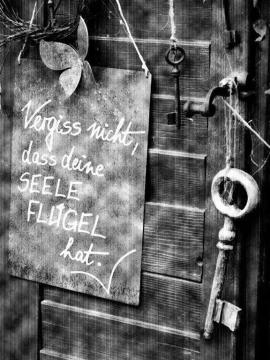 Vergiss nicht,
dass deine
SEELE
FLÜGEL
hat.